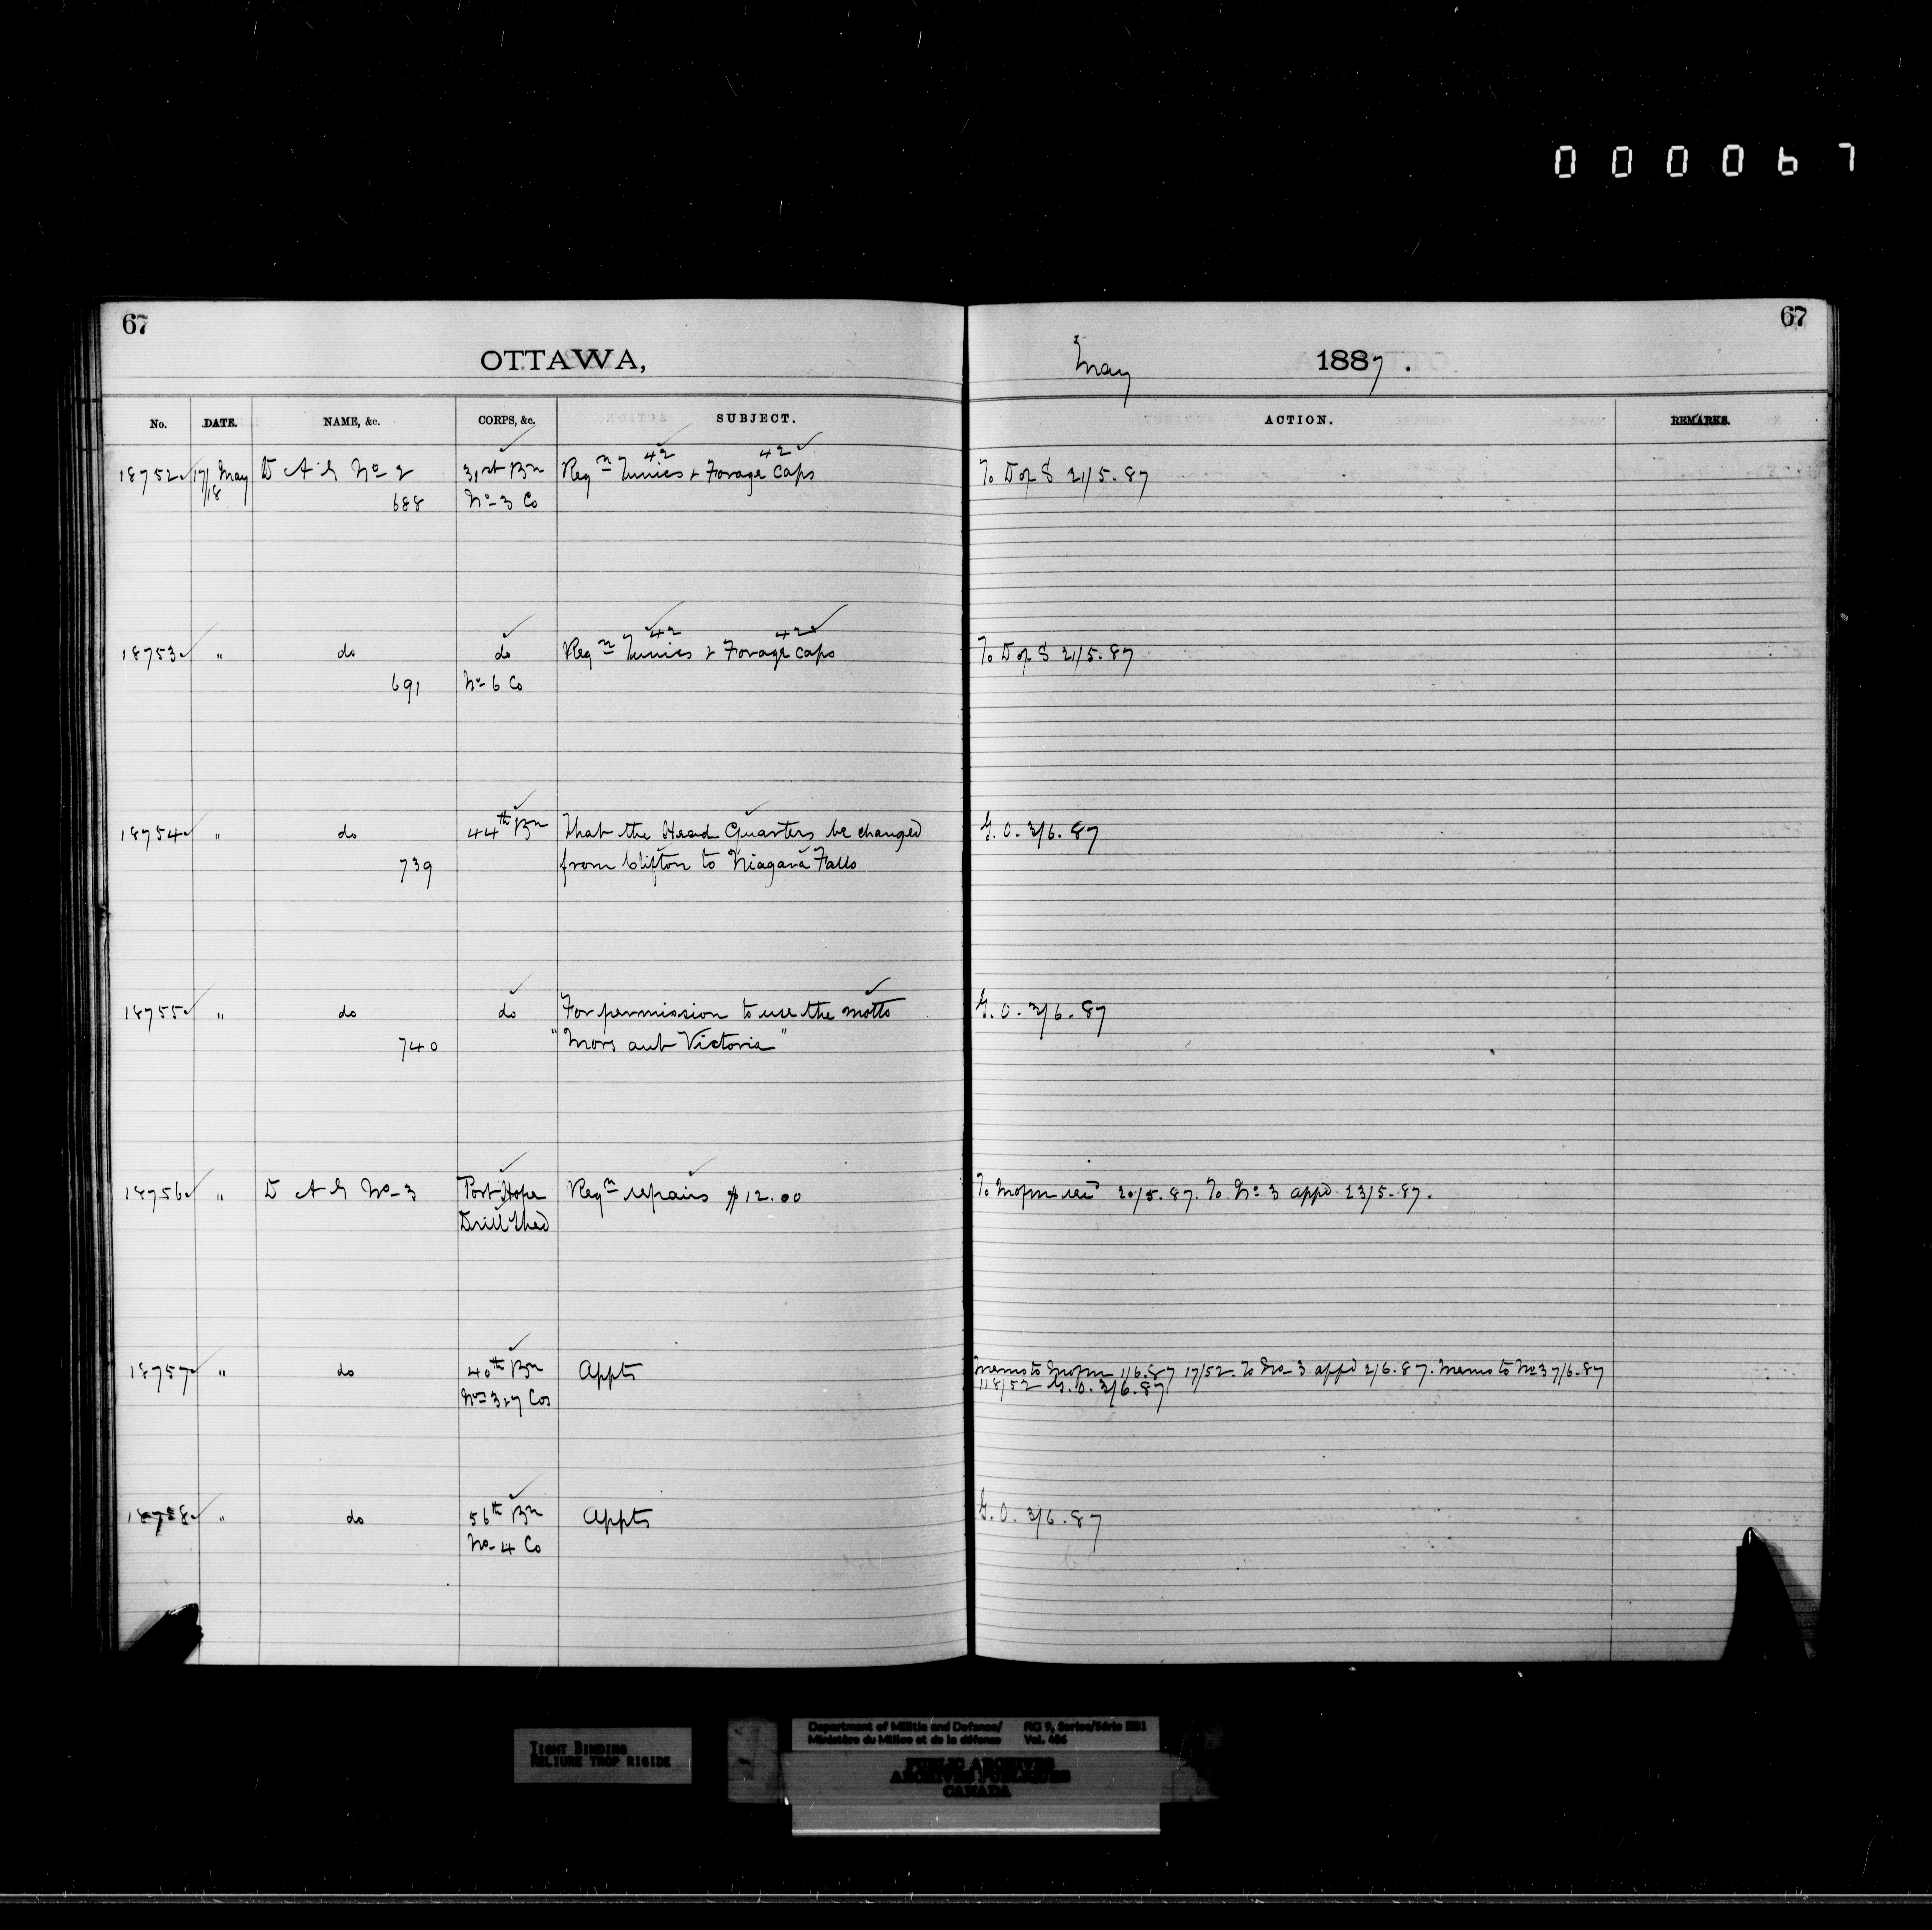 000067
67
67
OTTAWA,
May 1887.
No. DATE. NAME, &c. CORPS, &c. SUBJECT. ACTION. REMARKS.
42 42
18752 17/18 May D A G No 2 31st Bn Reqn Tunics & Forage caps To D of S 21/5.87
688 No 3 Co
42 42
18753 " do do Reqn Tunics & Forage caps To D of S 21/5.87
691 No 6 Co
18754 " do 44th Bn That the Head Quarters be changed G.O. 3/6.87
739 from Clifton to Niagara Falls
18755 " do do For permission to use the motto G.O. 3/6.87
740 "Mors aut Victoria"
18756 " D A G No 3 Port Hope Reqn repairs $12.00 To Mofm 20/5.87. To No 3 appd 23/5.87.
Drill shed
18757 " do 40th Bn Appts Memo to Mofm 1/6.87 17/52. To No 3 appd 2/6.87. Memo to No 3 7/6.87
Nos 3 & 7 Cos 118/52 G.O. 3/6.87
18758 " do 56th Bn Appts G.O. 3/6.87
No 4 Co
TIGHT BINDING
RELIURE TROP RIGIDE
Department of Militia and Defence/ RG 9, Series/Série IIB1
Ministère du Milice et de la défense Vol. 486
PUBLIC ARCHIVES
ARCHIVES PUBLIQUES
CANADA